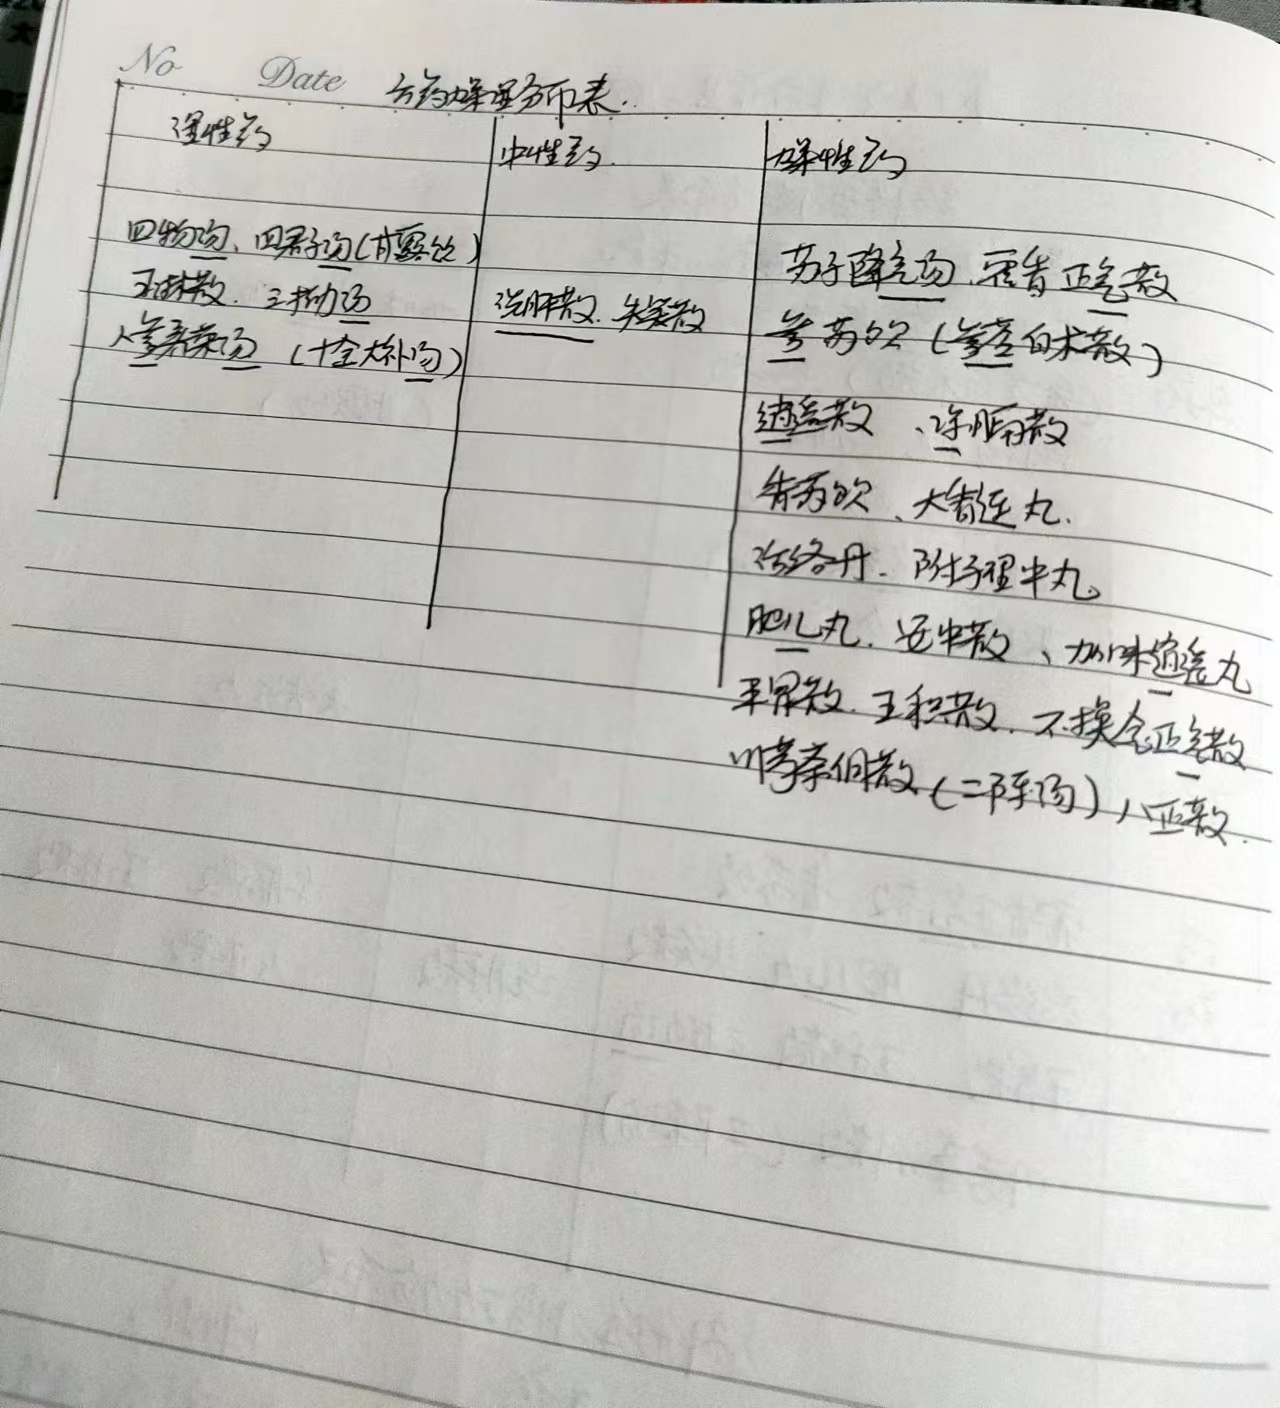 No Date 方药燥湿分布表.
湿性药 中性药. 燥性药
四物汤、四君子汤(甘露饮)
玉珠散. 三拗汤
人参养荣汤 (十全大补汤)
洗肝散. 失笑散
苏子降气汤、藿香正气散
参苏饮 (参苓白术散)
逍遥散 、凉膈散
香苏饮、大香连丸.
活络丹. 附子理中丸。
肥儿丸. 安中散 、加味逍遥丸
平胃散. 五积散. 不换金正气散
川芎茶调散 (二陈汤) 八正散.